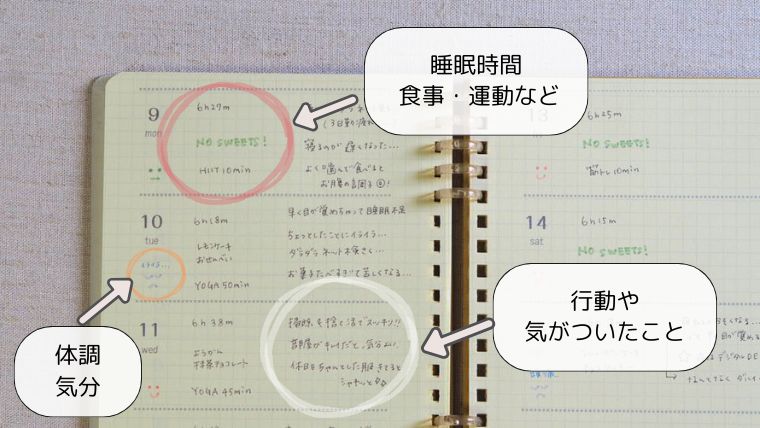 睡眠時間
食事・運動など
9
mon
6h27m
NO SWEETS!
HIIT 10min
寝るのが遅くなった…
よく噛んで食べると
お腹の調子◎!
10
tue
6h18m
レモンケーキ
おせんべい
イライラ…
YOGA 50min
早く目が覚めちゃって睡眠不足
ちょっとしたことにイライラ…
ダラダラネット
お菓子たべすぎて苦しくなる…
11
wed
6h 38m
ようかん
抹茶チョコレート
YOGA 45min
掃除も捨て活でスッキリ!!
部屋がキレイだと、気分よい
休日もちゃんとした服きてると
体調
気分
6h25m
筋トレ10min
14
sat
6h15m
NO SWEETS!
行動や
気がついたこと